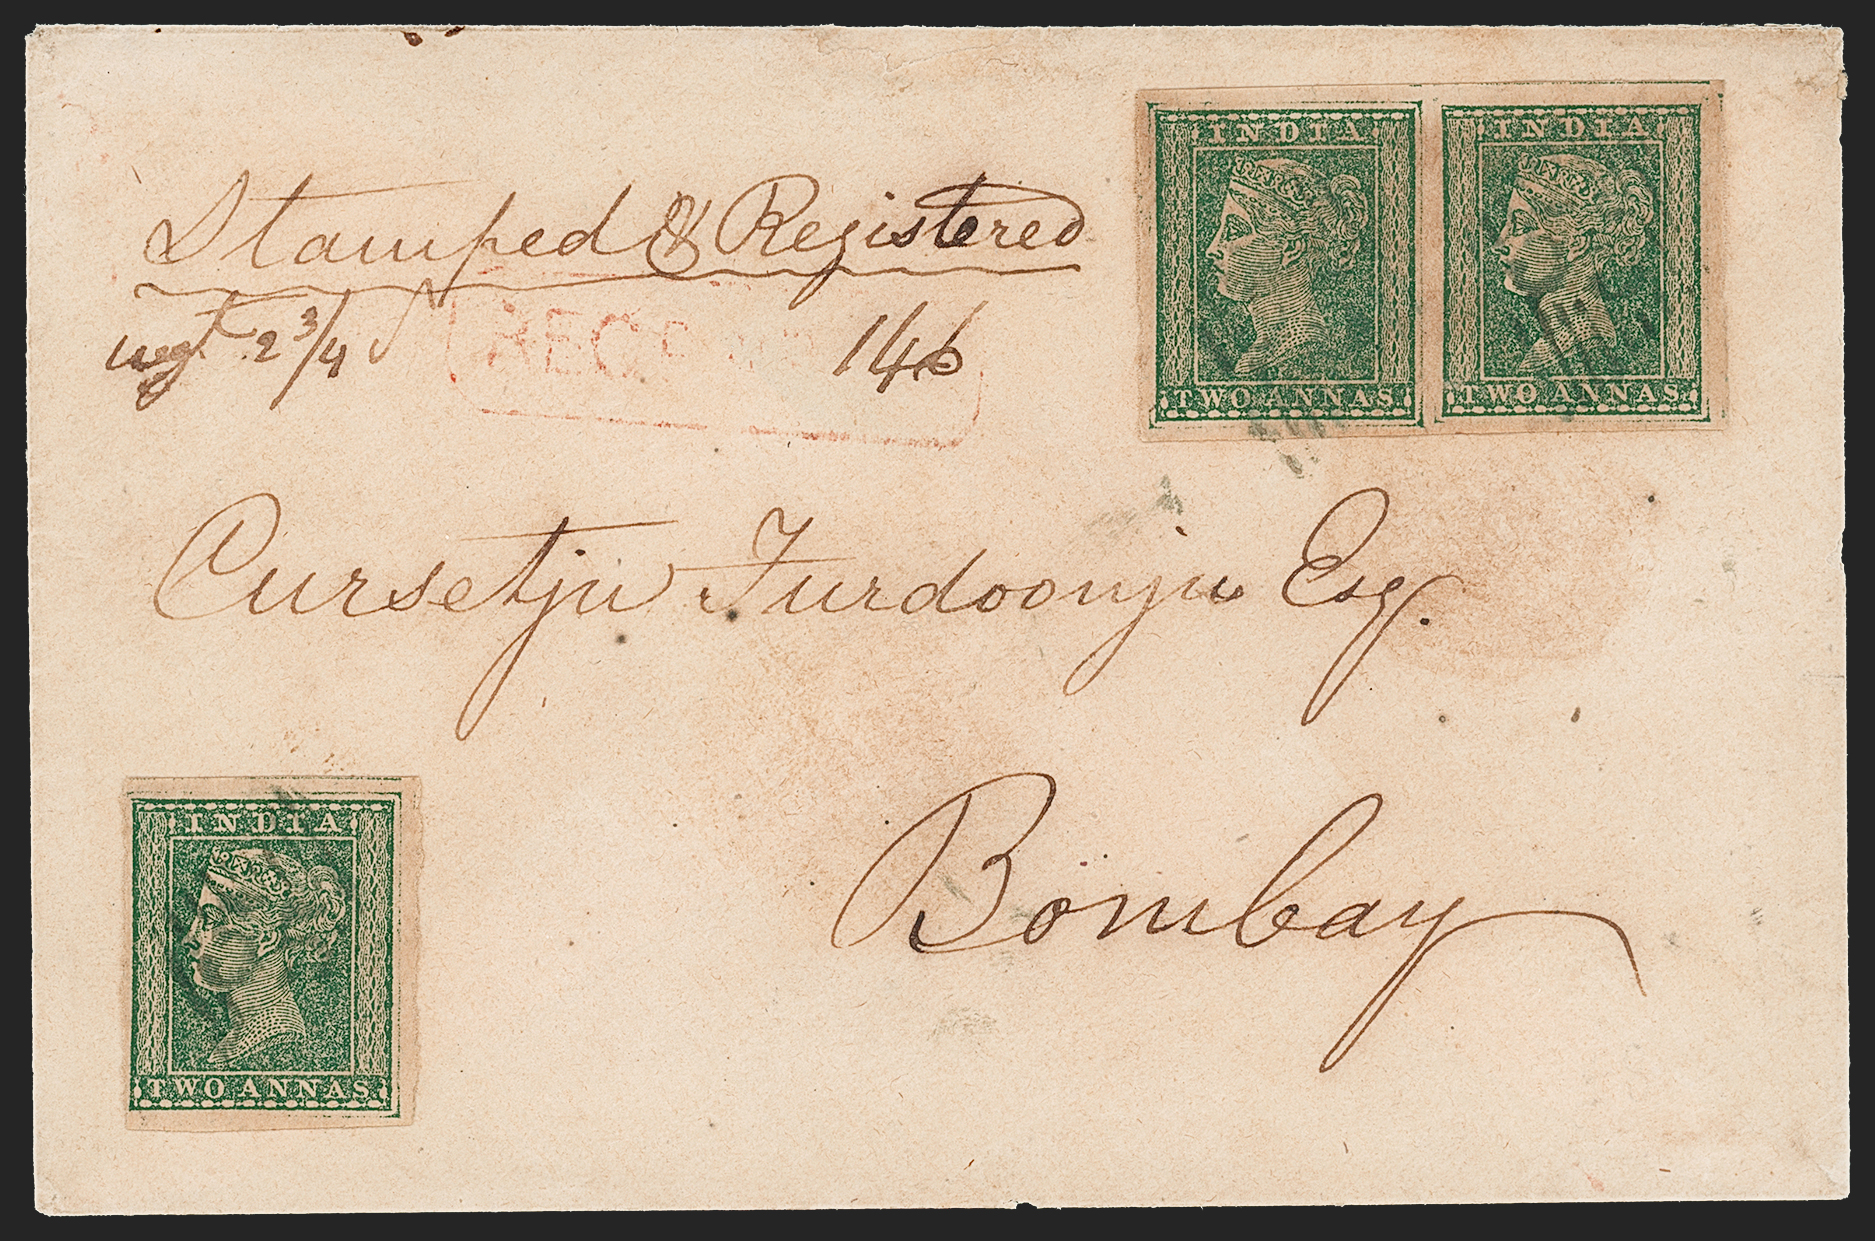 INDIA INDIA
TWO ANNAS. TWO ANNAS.
Stamped & Registered
wgt 2 3/4 146
Cursetjee Furdoonjee Esq.
Bombay
INDIA
TWO ANNAS.